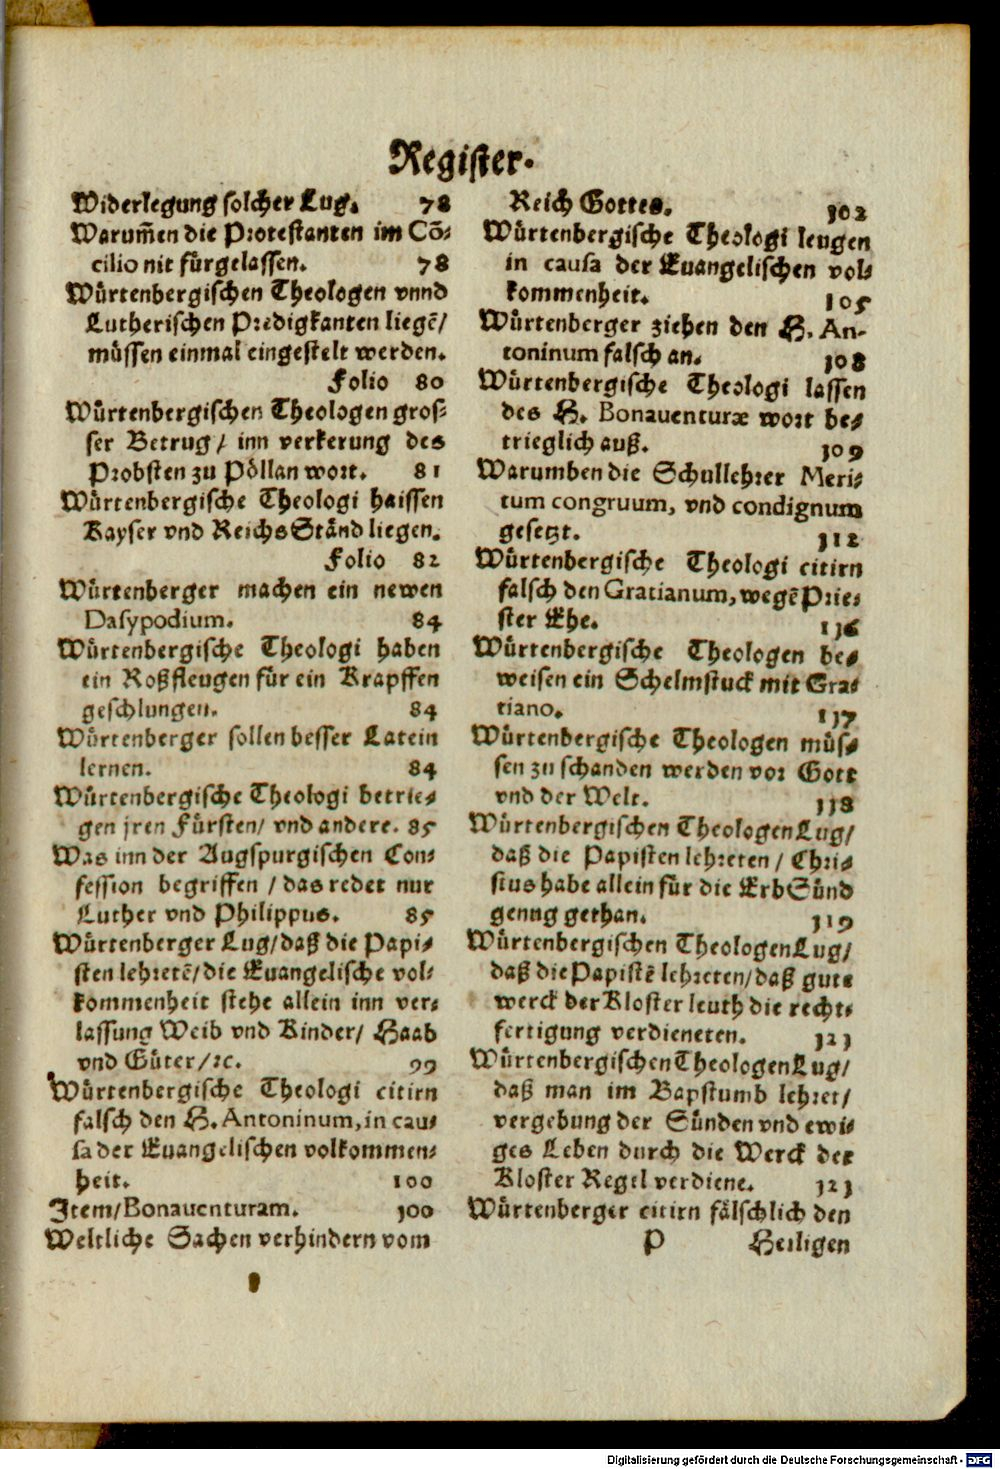 Register.
Widerlegung solcher Lug. 78
Warum̃en die Protestanten im Cõ-
cilio nit fürgelassen. 78
Würtenbergischen Theologen vnnd
Lutherischen Predigkanten liegẽ/
müssen einmal eingestelt werden.
Folio 80
Würtenbergischen Theologen gros-
ser Betrug/ inn verkerung des
Probsten zu Pöllan wort. 81
Würtenbergische Theologi haissen
Kayser vnd ReichsStänd liegen.
Folio 82
Würtenberger machen ein newen
Dasypodium. 84
Würtenbergische Theologi haben
ein Roßfleugen für ein Krapffen
geschlungen. 84
Würtenberger sollen besser Latein
lernen. 84
Würtenbergische Theologi betrie-
gen jren Fürsten/ vnd andere. 85
Was inn der Augspurgischen Con-
fession begriffen / das redet nur
Luther vnd Philippus. 85
Würtenberger Lug/daß die Papi-
sten lehretẽ/die Euangelische vol-
kommenheit stehe allein inn ver-
lassung Weib vnd Kinder/ Haab
vnd Güter/ꝛc. 99
Würtenbergische Theologi citirn
falsch den H. Antoninum, in cau-
sa der Euangelischen volkommen-
heit. 100
Item/Bonauenturam. 100
Weltliche Sachen verhindern vom
Reich Gottes. 102
Würtenbergische Theologi leugen
in causa der Euangelischen vol-
kommenheit. 105
Würtenberger ziehen den H. An-
toninum falsch an. 108
Würtenbergische Theologi lassen
des H. Bonauenturæ wort be-
trieglich auß. 109
Warumben die Schullehrer Meri-
tum congruum, vnd condignum
gesetzt. 112
Würtenbergische Theologi citirn
falsch den Gratianum, wegẽ Prie-
ster Ehe. 116
Würtenbergische Theologen be-
weisen ein Schelmstuck mit Gra-
tiano. 117
Würtenbergische Theologen müs-
sen zu schanden werden vor Gott
vnd der Welt. 118
Würtenbergischen TheologenLug/
daß die Papisten lehreten / Chri-
stus habe allein für die ErbSünd
genug gethan. 119
Würtenbergischen TheologenLug/
daß die Papistẽ lehreten/daß gute
werck der Kloster leuth die recht-
fertigung verdieneten. 121
Würtenbergischen TheologenLug/
daß man im Bapstumb lehret/
vergebung der Sünden vnd ewi-
ges Leben durch die Werck der
Kloster Regel verdiene. 121
Würtenberger citirn fälschlich den
P Heiligen
Digitalisierung gefördert durch die Deutsche Forschungsgemeinschaft - DFG